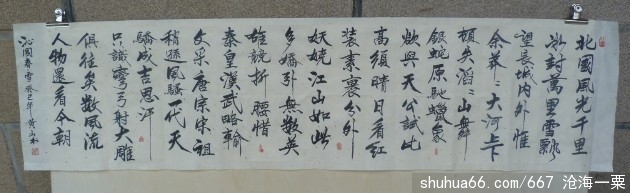 北國風光千里
冰封萬里雪飄
望長城内外惟
余莽〻大河上下
頓失滔〻山舞
銀蛇原馳蠟象
欲與天公試比
高須晴日看紅
裝素裹分外
妖嬈江山如此
多嬌引無數英
雄競折腰惜
秦皇漢武略輸
文采唐宗宋祖
稍遜風騷一代天
驕成吉思汗
只識彎弓射大雕
俱往矣數風流
人物還看今朝
沁園春雪 癸巳年 黄山
shuhua66.com/667 沧海一粟